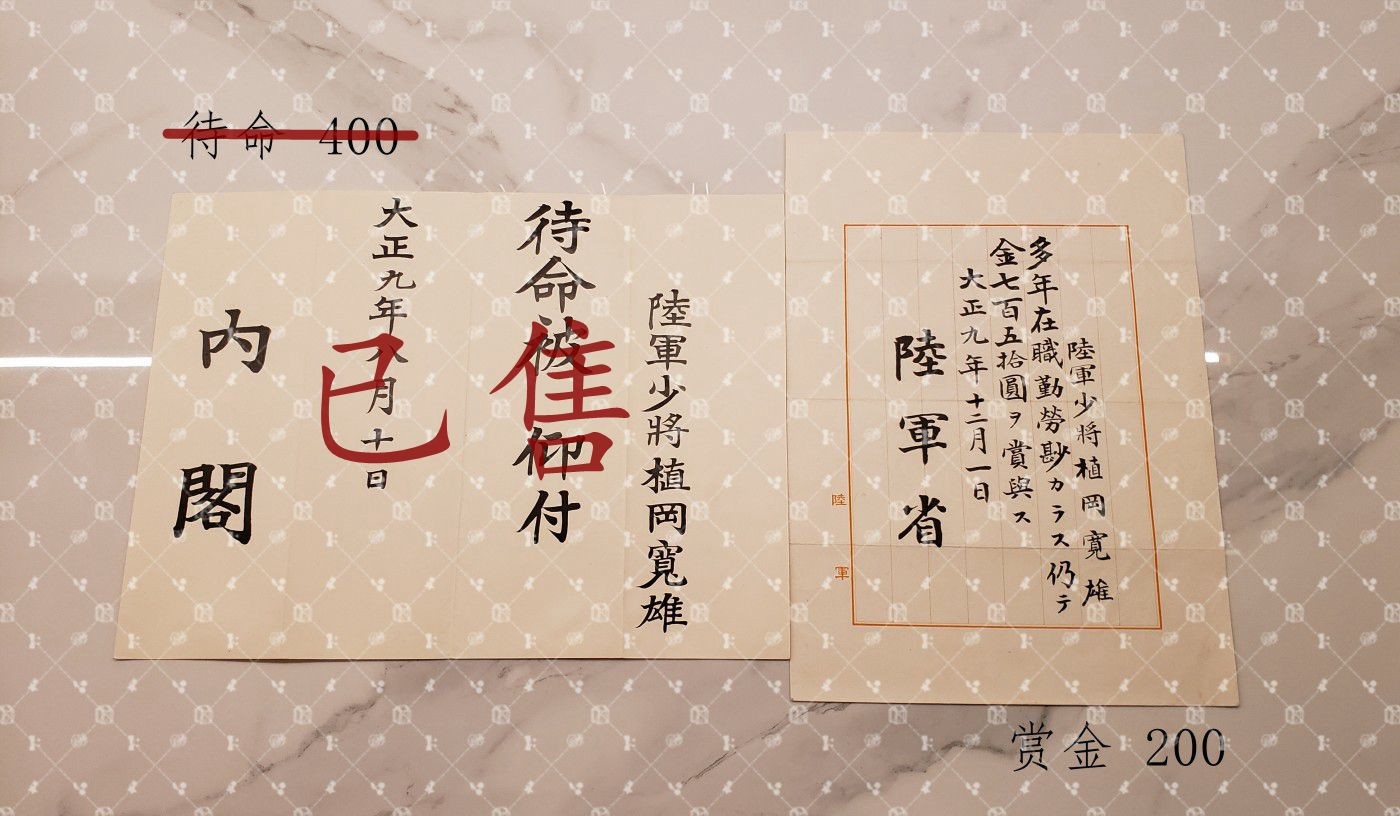 待命 400
陸軍少將植岡寬雄
待命被仰付
大正九年八月十日
内閣
已售
陸軍少將植岡寬雄
多年在職勤勞尠カラス仍テ
金七百五拾圓ヲ賞與ス
大正九年十二月一日
陸軍省
陸軍
赏金 200